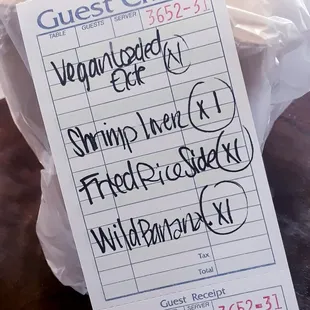 Guest Ch
TABLE GUESTS SERVER 3652-31
Vegan Loaded
Shrimp Lover x1
Fried Rice Side x1
Wild Banana. x1
Tax
Total
Guest Receipt
3652-31